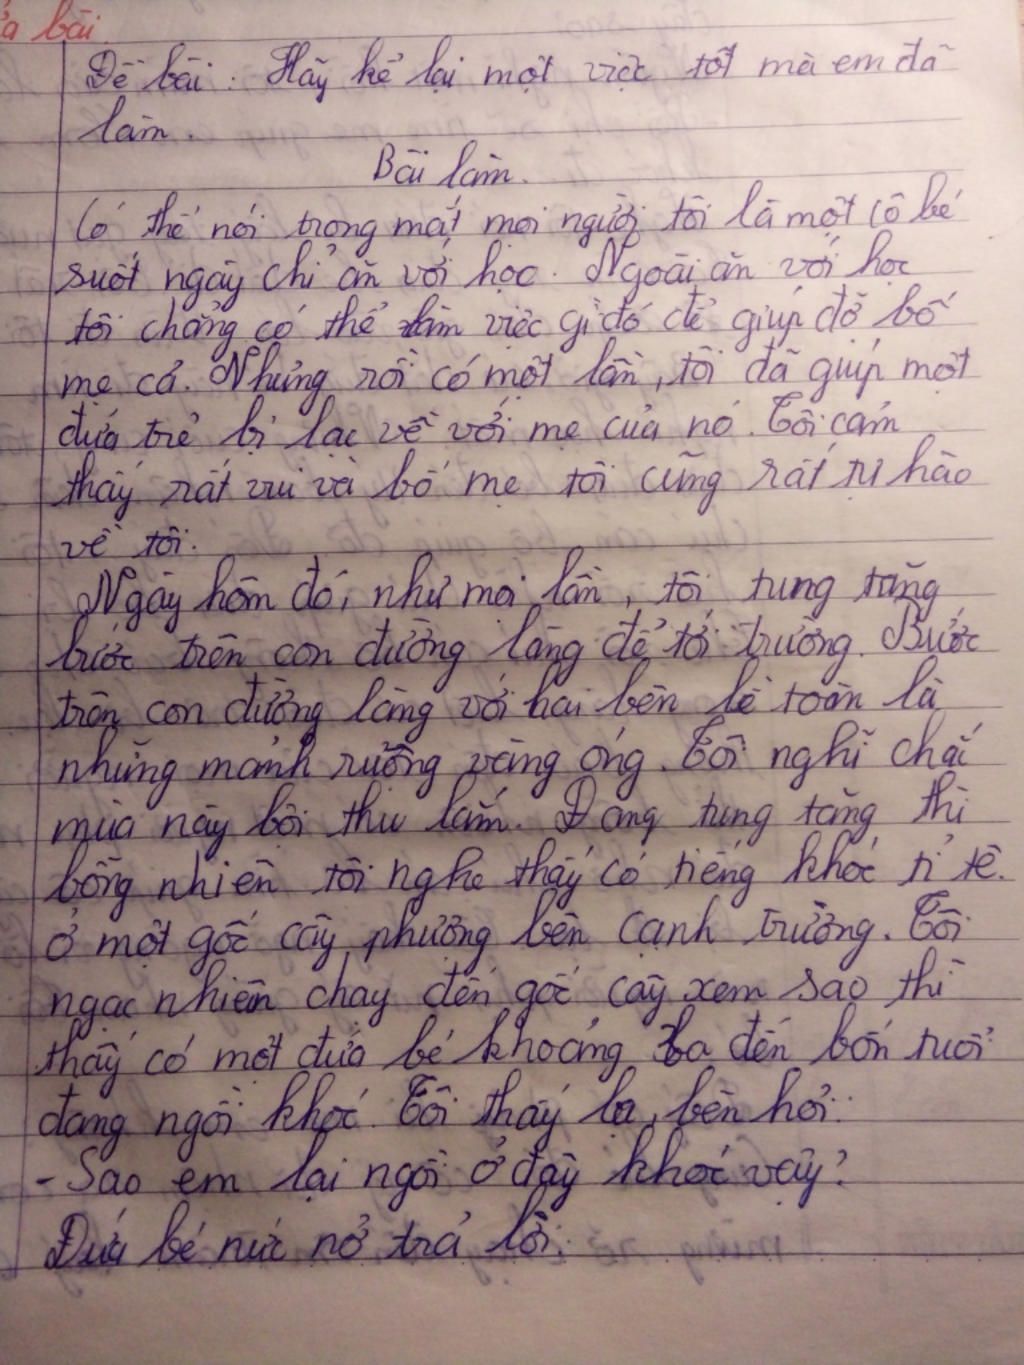 bài
Đề bài: Hãy kể lại một việc tốt mà em đã
làm.
Bài làm.
Có thể nói trong mắt mọi người tôi là một cô bé
suốt ngày chỉ ăn với học. Ngoài ăn với học
tôi chẳng có thể làm việc gì đó để giúp đỡ bố
mẹ cả. Nhưng rồi có một lần, tôi đã giúp một
đứa trẻ bị lạc về với mẹ của nó. Tôi cảm
thấy rất vui và bố mẹ tôi cũng rất tự hào
về tôi.
Ngày hôm đó, như mọi lần, tôi tung tăng
bước trên con đường làng để tới trường. Bước
trên con đường làng với hai bên lề toàn là
những mảnh ruộng vàng óng. Tôi nghĩ chắc
mùa này bội thu lắm. Đang tung tăng thì
bỗng nhiên tôi nghe thấy có tiếng khóc tỉ tê.
ở một gốc cây phượng bên cạnh trường. Tôi
ngạc nhiên chạy đến gốc cây xem sao thì
thấy có một đứa bé khoảng ba đến bốn tuổi
đang ngồi khóc. Tôi thấy lạ, bèn hỏi:
- Sao em lại ngồi ở đây khóc vậy?
Đứa bé nức nở trả lời: